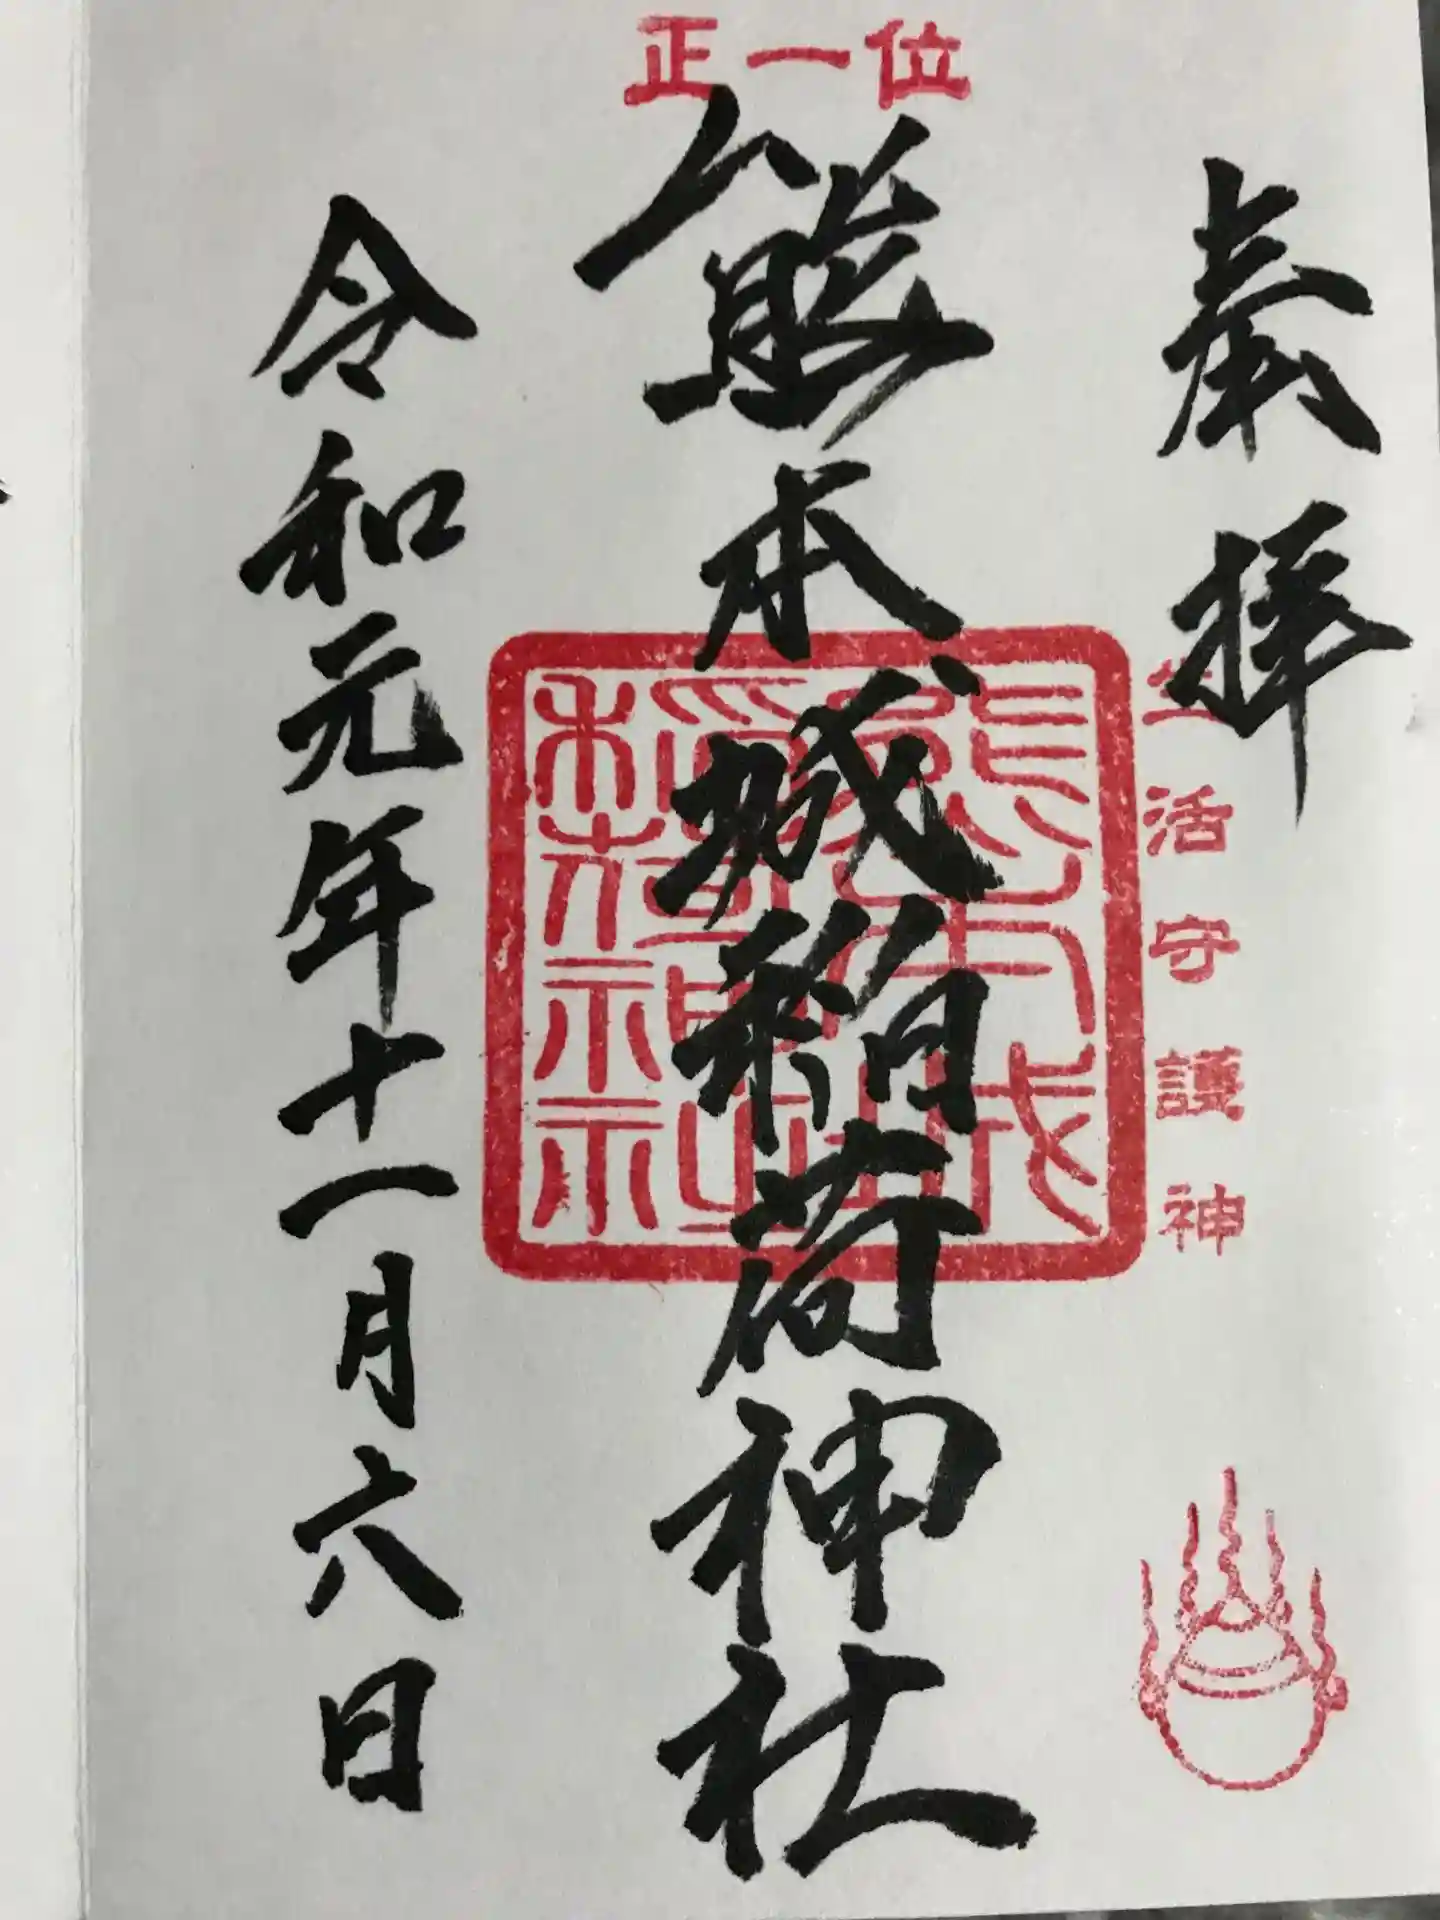 正一位
奉拝
生活守護神
熊本城稲荷神社
熊本城
稲荷神社
令和元年十一月六日